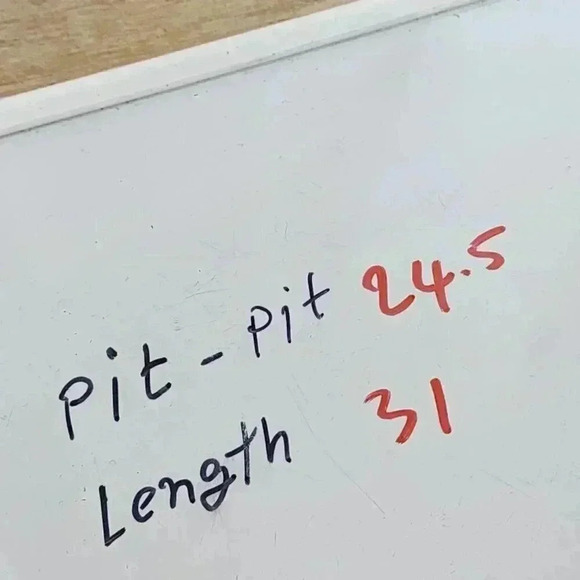 pit - pit 24.5
Length 31